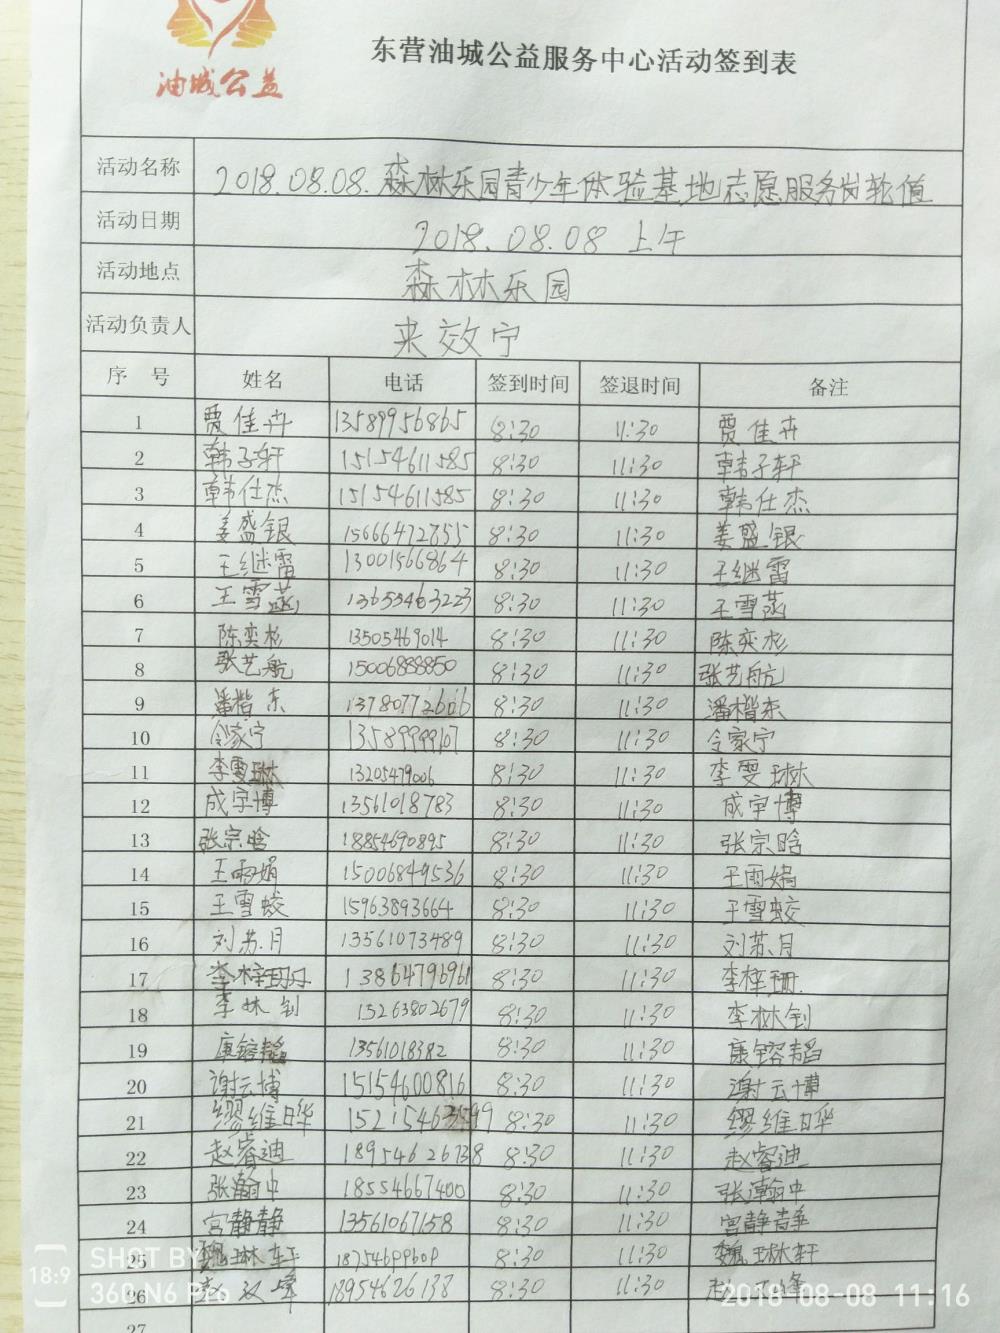 油城公益
东营油城公益服务中心活动签到表
活动名称 2018.08.08.森林乐园青少年体验基地志愿服务岗轮值
活动日期 2018.08.08 上午
活动地点 森林乐园
活动负责人 来效宁
序 号 姓名 电话 签到时间 签退时间 备注
1 贾佳卉 13589956865 8:30 11:30 贾佳卉
2 韩子轩 15154611585 8:30 11:30 韩子轩
3 韩仕杰 15154611585 8:30 11:30 韩仕杰
4 姜盛银 15666472855 8:30 11:30 姜盛银
5 王继雷 13001566864 8:30 11:30 王继雷
6 王雪菡 13655463223 8:30 11:30 王雪菡
7 陈奕杉 13505469014 8:30 11:30 陈奕杉
8 张艺航 15006888850 8:30 11:30 张艺航
9 潘楷东 13780772606 8:30 11:30 潘楷东
10 令家宁 13589999107 8:30 11:30 令家宁
11 李雯琳 13205479006 8:30 11:30 李雯琳
12 成宇博 13561018783 8:30 11:30 成宇博
13 张宗晗 18854690895 8:30 11:30 张宗晗
14 王雨娟 15006849536 8:30 11:30 王雨娟
15 王雪蛟 15963893664 8:30 11:30 王雪蛟
16 刘苏月 13561073489 8:30 11:30 刘苏月
17 李梓珊 13864796961 8:30 11:30 李梓珊
18 李林钊 15263802679 8:30 11:30 李林钊
19 康镕韬 13561018382 8:30 11:30 康镕韬
20 谢云博 15154600816 8:30 11:30 谢云博
21 缪维晔 8:30 11:30 缪维晔
22 赵睿迪 18954626738 8:30 11:30 赵睿迪
23 张瀚中 18554667400 8:30 11:30 张瀚中
24 宫静静 13561067158 8:30 11:30 宫静静
25 魏琳轩 8:30 11:30 魏琳轩
26 赵双峰 18954626138 8:30 11:30
27
18:9 SHOT BY
360 N6 Pro
2018-08-08 11:16